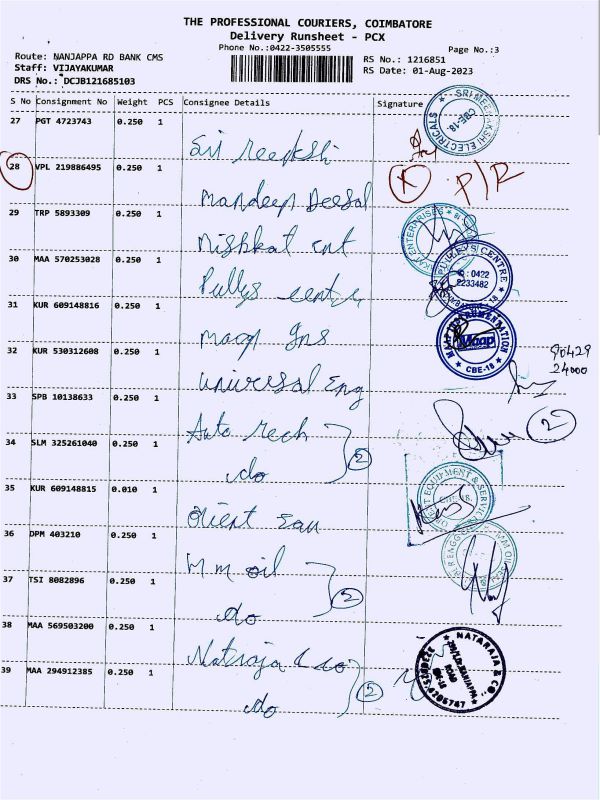 THE PROFESSIONAL COURIERS, COIMBATORE
Delivery Runsheet - PCX
Phone No.:0422-3505555 Page No.:3
Route: NANJAPPA RD BANK CMS RS No.: 1216851
Staff: VIJAYAKUMAR RS Date: 01-Aug-2023
DRS No.: DCJB121685103
S No Consignment No Weight PCS Consignee Details Signature
27 PGT 4723743 0.250 1
28 VPL 219886495 0.250 1 P/R
Mandeep Deesal
29 TRP 5893309 0.250 1
Nishkat ent
30 MAA 570253028 0.250 1
Pullys centre
31 KUR 609148816 0.250 1
Maap Ins
32 KUR 530312608 0.250 1 90429
24000
Universal Eng
33 SPB 10138633 0.250 1
Auto Tech 2
34 SLM 325261040 0.250 1 2
do
35 KUR 609148815 0.010 1
Orient Equ
36 DPM 403210 0.250 1
M m oil
37 TSI 8082896 0.250 1 2
do
38 MAA 569503200 0.250 1
Nataraja & co
39 MAA 294912385 0.250 1 2
do
SRI MEENAKSHI ELECTRICALS CBE-18.
PULLEYS CENTRE
: 0422
2233482
Maap
CBE-18
NATARAJA & CO.,